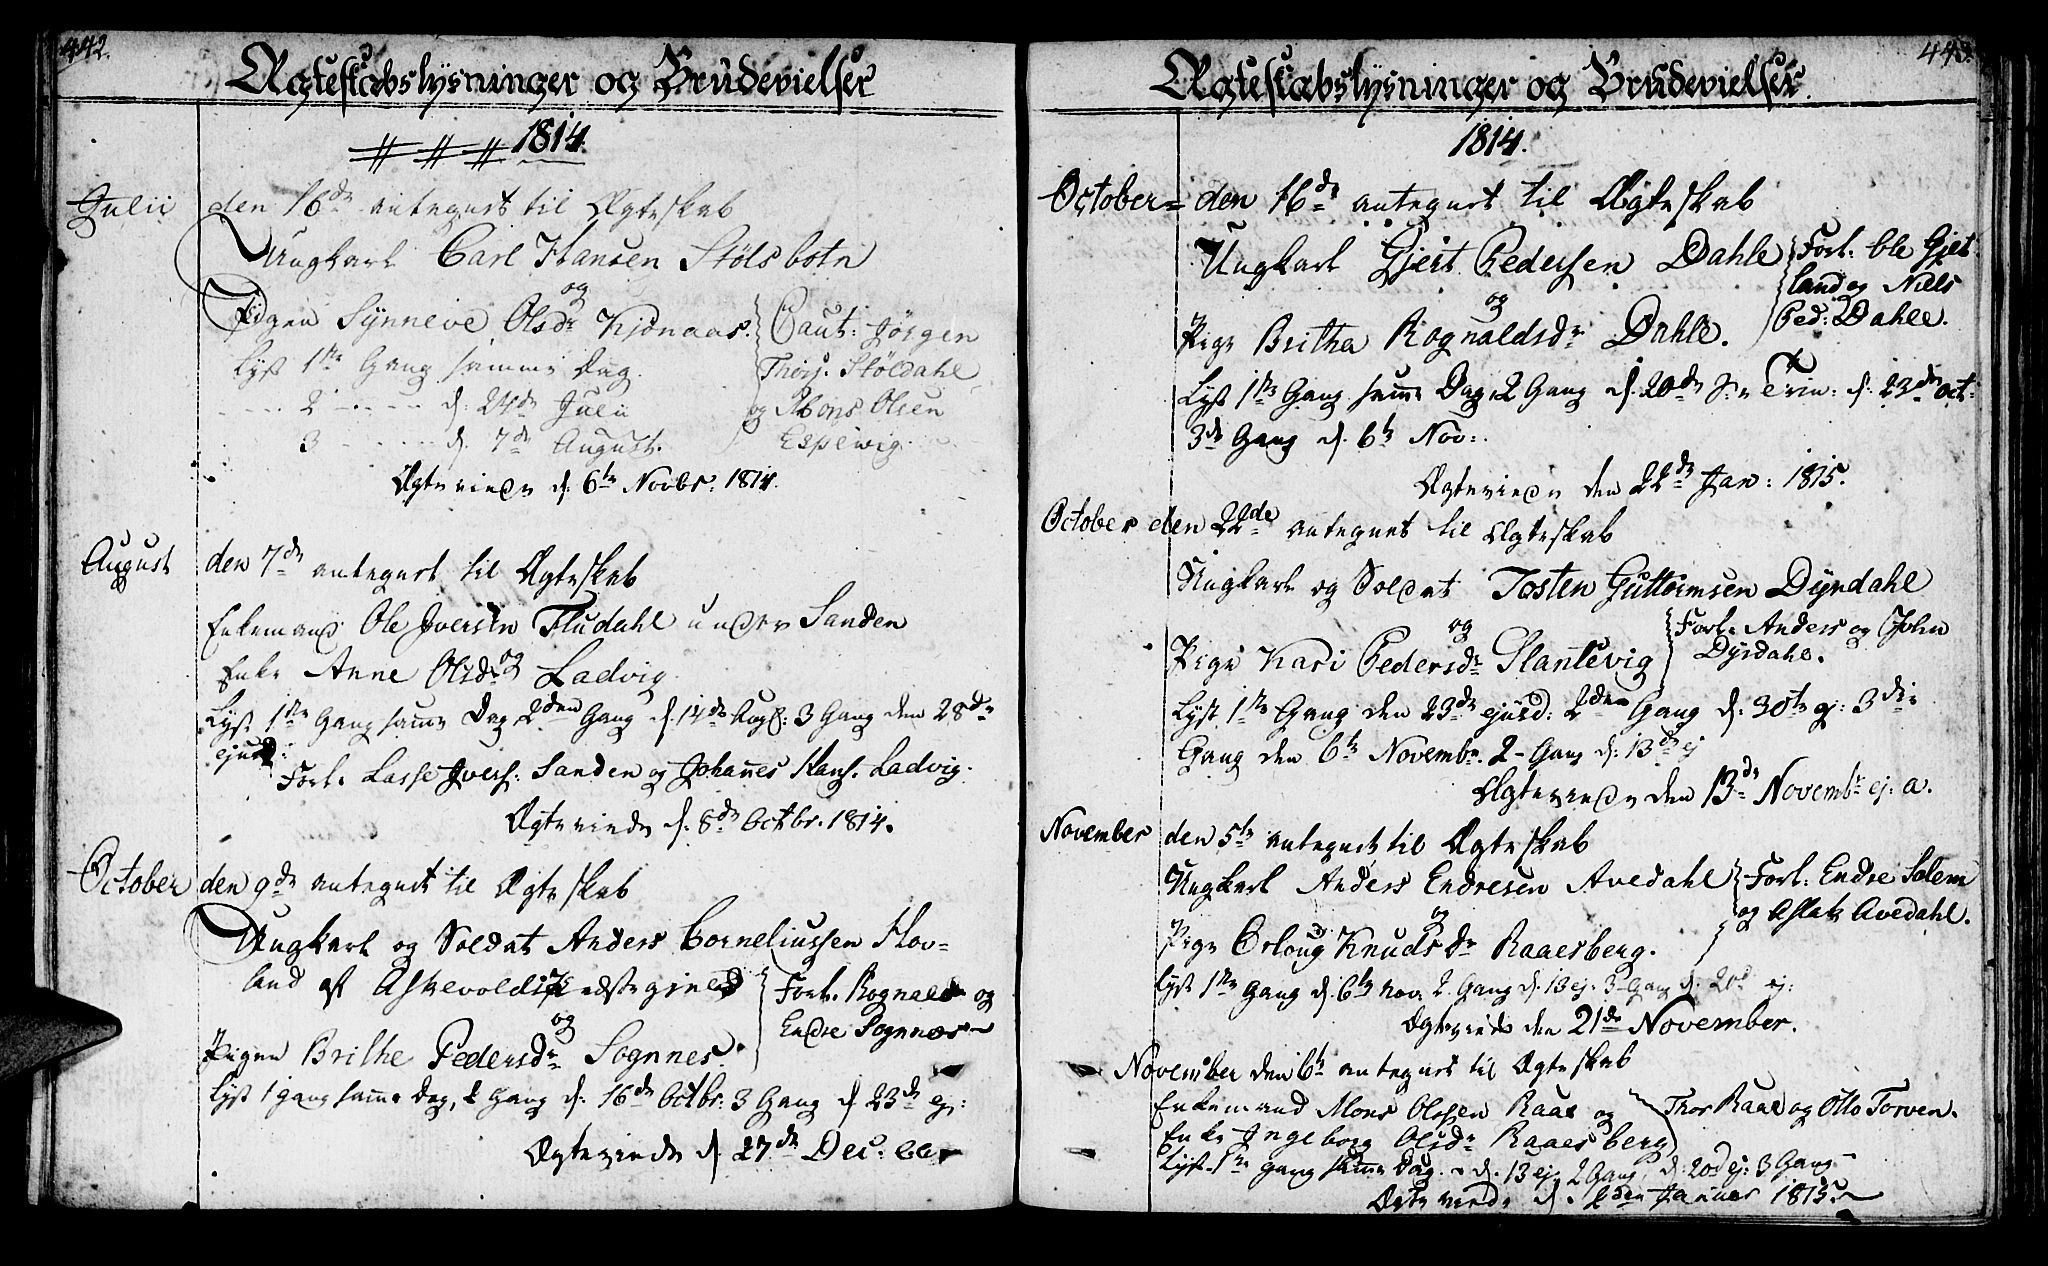 442.
Ægteskabslysninger og Brudevielser
1814.
Julii den 16de antegnet til Ægteskab
Ungkarl Carl Hansen Stølsbotn
og
Pigen Synneve Olsdr Kjønaas. Caut: Jørgen
Lyst 1ste Gang samme Dag. Thorj. Støldahl
2 - - - d: 24de Julii og Mons Olsen
3 - - - d. 7de August. Espewig.
Ægteviede d. 6te Novbr. 1814.
August den 7de antegnet til Ægteskab
Enkemand Ole Iversen Fludahl under Sanden
og
Enke Anne Olsdr Ladvig
Lyst 1ste Gang samme Dag 2den Gang d. 14de Aug: 3 Gang den 28de
ejusd:
Forl. Lasse Ivers. Sanden og Johanes Hans. Ladvig.
Ægteviede d. 8de Octbr. 1814.
October den 9de antegnet til Ægteskab
Ungkarl og Soldat Anders Corneliussen Hov=
land af Askevold Præstegield Forl. Rognald og
og Endre Sognnes
Pigen Brithe Pedersdr Sognnes.
Lyst 1 gang samme Dag, 2 Gang d. 16de Octbr. 3 Gang d 23de ej:
Ægteviede d 27de Dec:
443.
Ægteskabslysninger og Brudevielser.
1814.
October= den 16de antegnet til Ægteskab
Ungkarl Gjert Pedersen Dahle Forl. Ole Gjet
og land og Niels
Pige Britha Rognaldsdr Dahle. Ped: Dahle.
Lyst 1ste Gang samme Dag, 2 Gang d. 20de S. Trin: d. 23de oct:
3de Gang d. 6te Nov:
Ægteviede den 22de Jan: 1815.
October den 22de antegnet til Ægteskab
Ungkarl og Soldat Josten Guttormsen Dyrdahl
og Forl. Anders og John
Pige Kari Pedersdr Slantevig Dyrdahl.
Lyst 1ste Gang den 23de ejusd: 2den Gang d: 30te ej: 3die
Gang den 6te Novembr. 2- Gang d. 13de ej
Ægteviede den 13de Novembr ej. a.
November den 5te antegnet til Ægteskab
Ungkarl Anders Endresen Avedahl Forl. Endre Solem
og og Aslak Avedahl.
Pige Orloug Knudsdr Raaesberg.
Lyst 1ste Gang d. 6te Nov. 2. Gang d. 13 ej. 3- Gang d. 20d ej:
Ægteviede den 21de November.
November den 6te antegnet til Ægteskab
Enkemand Mons Olssen Raae og Thor Raae og Otto Torven.
Enke Ingeborg Olsdr Raaesberg
Lyst 1ste gang samme Dag. d. 13 ej 2 Gang, d. 20d ej: 3 Gang
Ægteviede d. 2den Januar 1815.